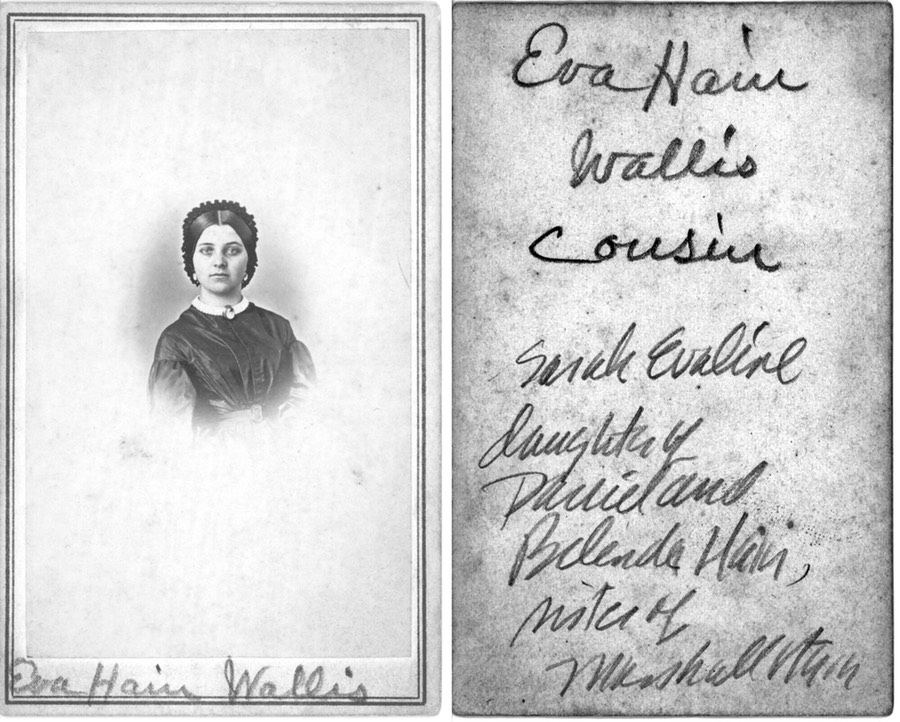 Eva Hain Wallis
Eva Hain
Wallis
Cousin
Sarah Evaline
daughter of
Daniel and
Belinda Hain,
sister of
Marshall Hain